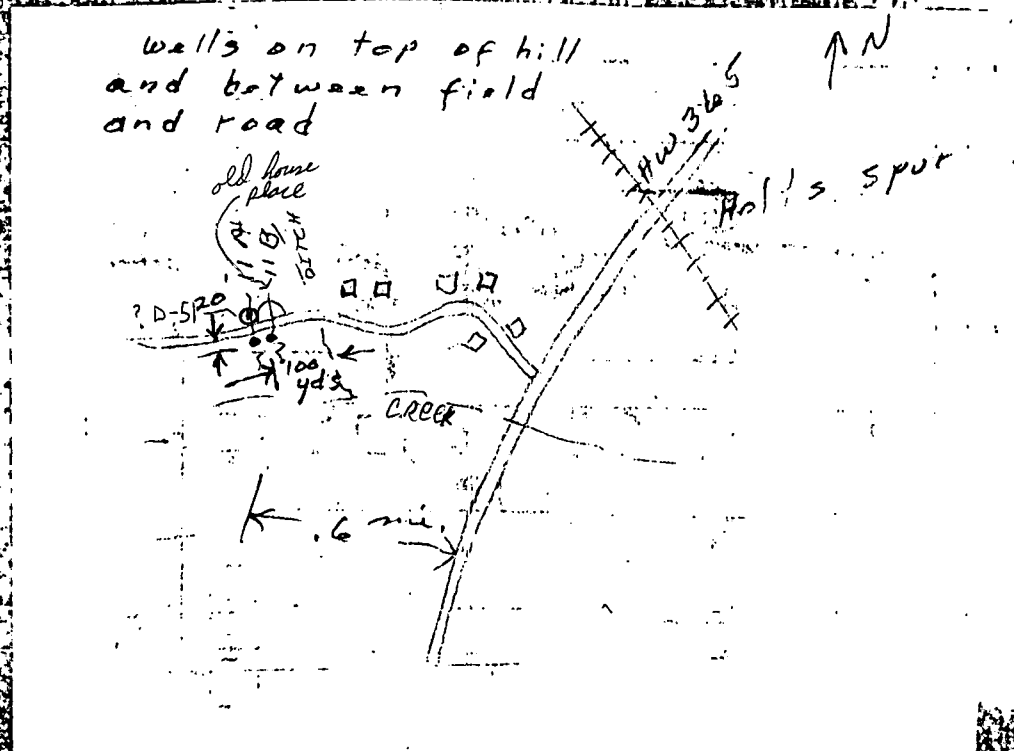 wells on top of hill
and between field
and road
N
HW 365
Hol's spur
old house
place
DITCH
? D-51
20'
100
yds
CREEK
.6 mi.